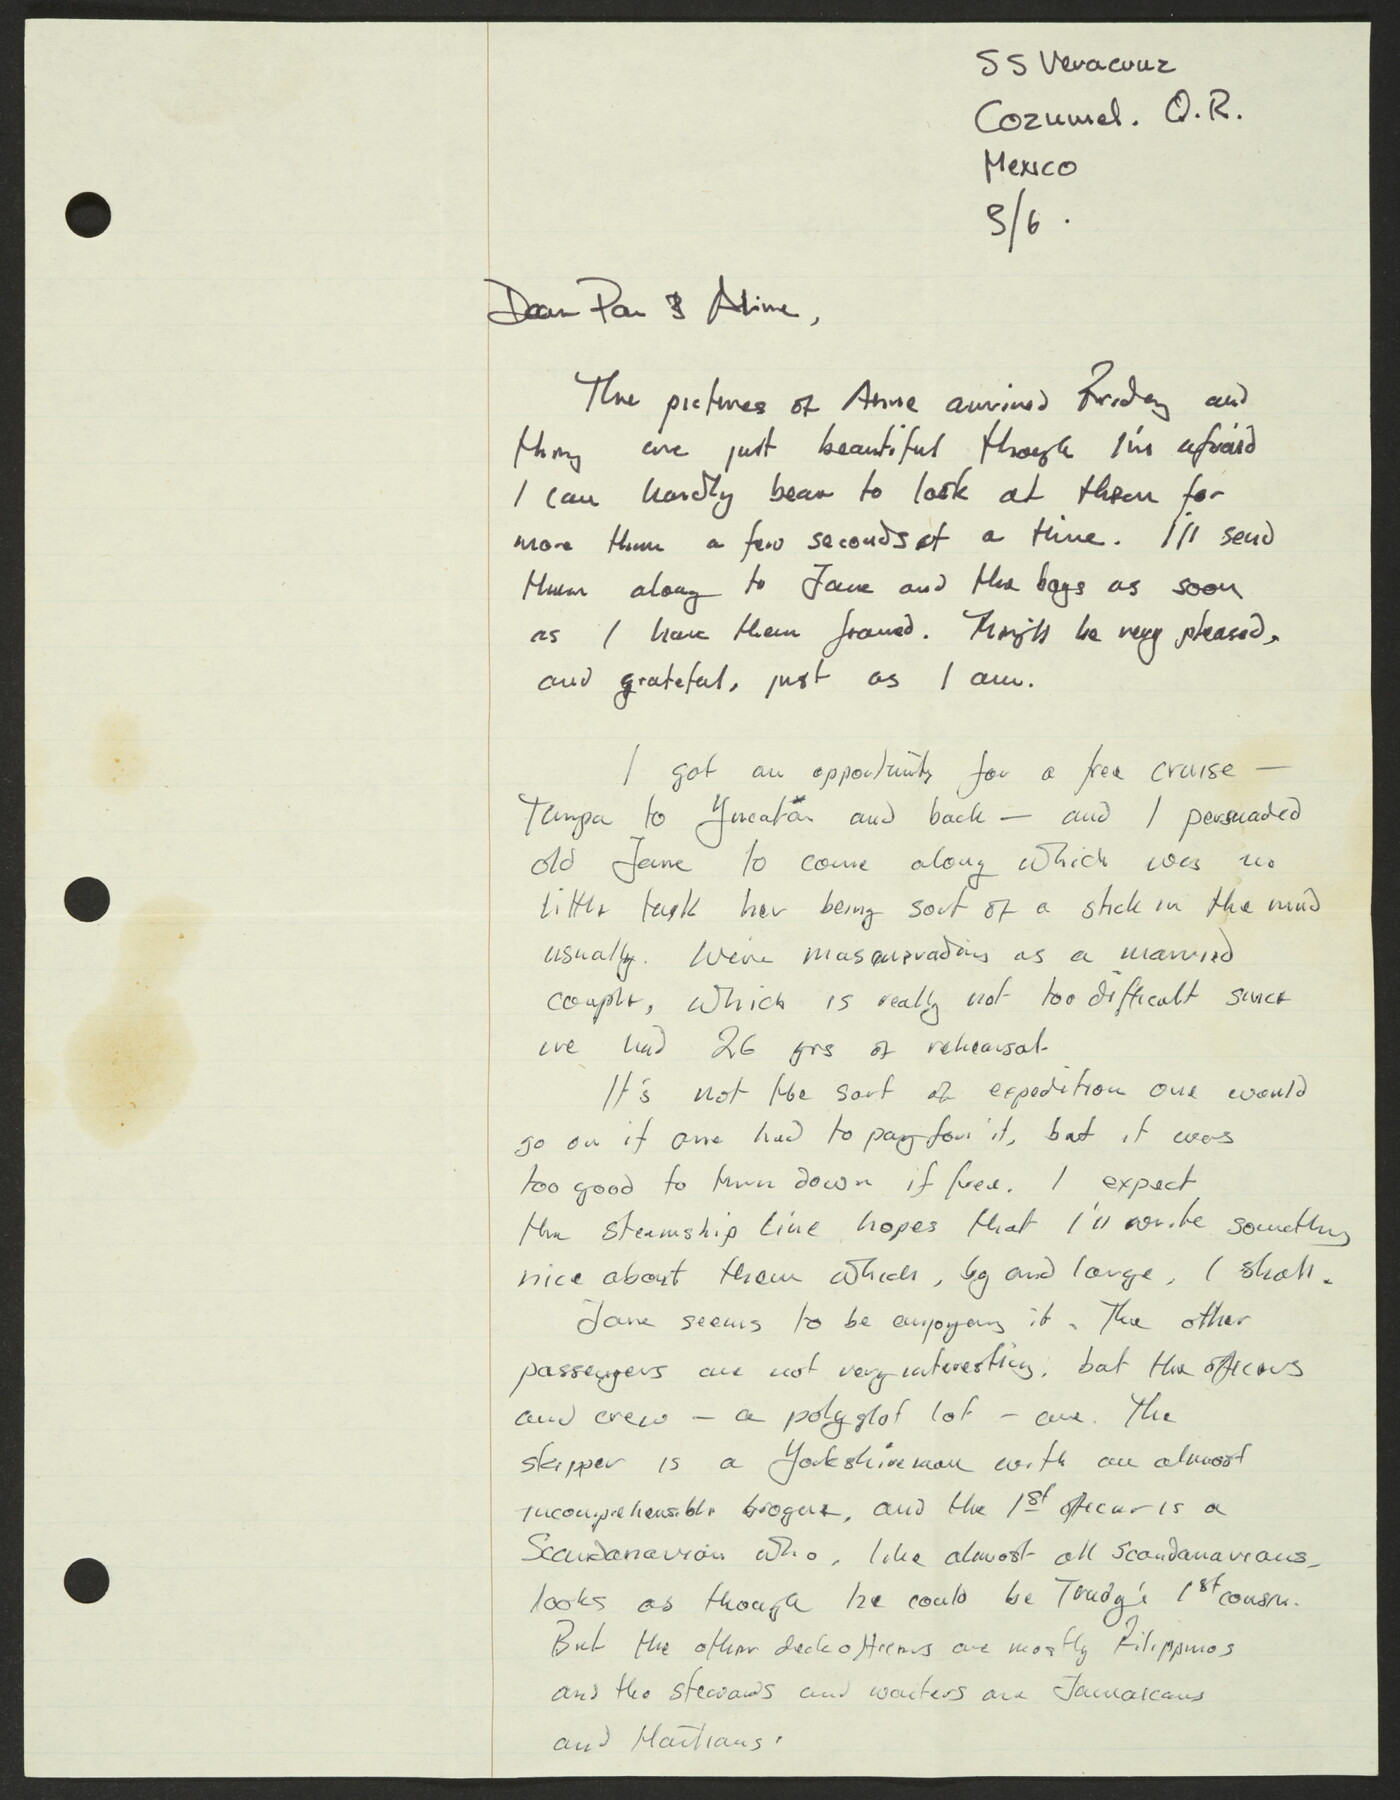 SS Veracruz
Cozumel. Q.R.
Mexico
3/6.
Dear Pan & Aline,
The pictures of Anne arrived Friday and
they are just beautiful though I'm afraid
I can hardly bear to look at them for
more than a few seconds at a time. I'll send
them along to Jane and the boys as soon
as I have them framed. They'll be very pleased,
and grateful, just as I am.
I got an opportunity for a free cruise —
Tampa to Yucatán and back — and I persuaded
old Jane to come along which was no
little task her being sort of a stick in the mud
usually. We're masquerading as a married
couple, which is really not too difficult since
we had 26 yrs of rehearsal.
It's not the sort of expedition one would
go on if one had to pay for it, but it was
too good to turn down if free. I expect
the steamship line hopes that I'll write something
nice about them which, by and large, I shall.
Jane seems to be enjoying it. The other
passengers are not very interesting, but the officers
and crew – a polyglot lot – are. The
skipper is a Yorkshireman with an almost
incomprehensible brogue, and the 1st officer is a
Scandanavian who, like almost all Scandanavians,
looks as though he could be Trudy's 1st cousin.
But the other deck officers are mostly Filippinos
and the stewards and waiters are Jamaicans
and Haitians.